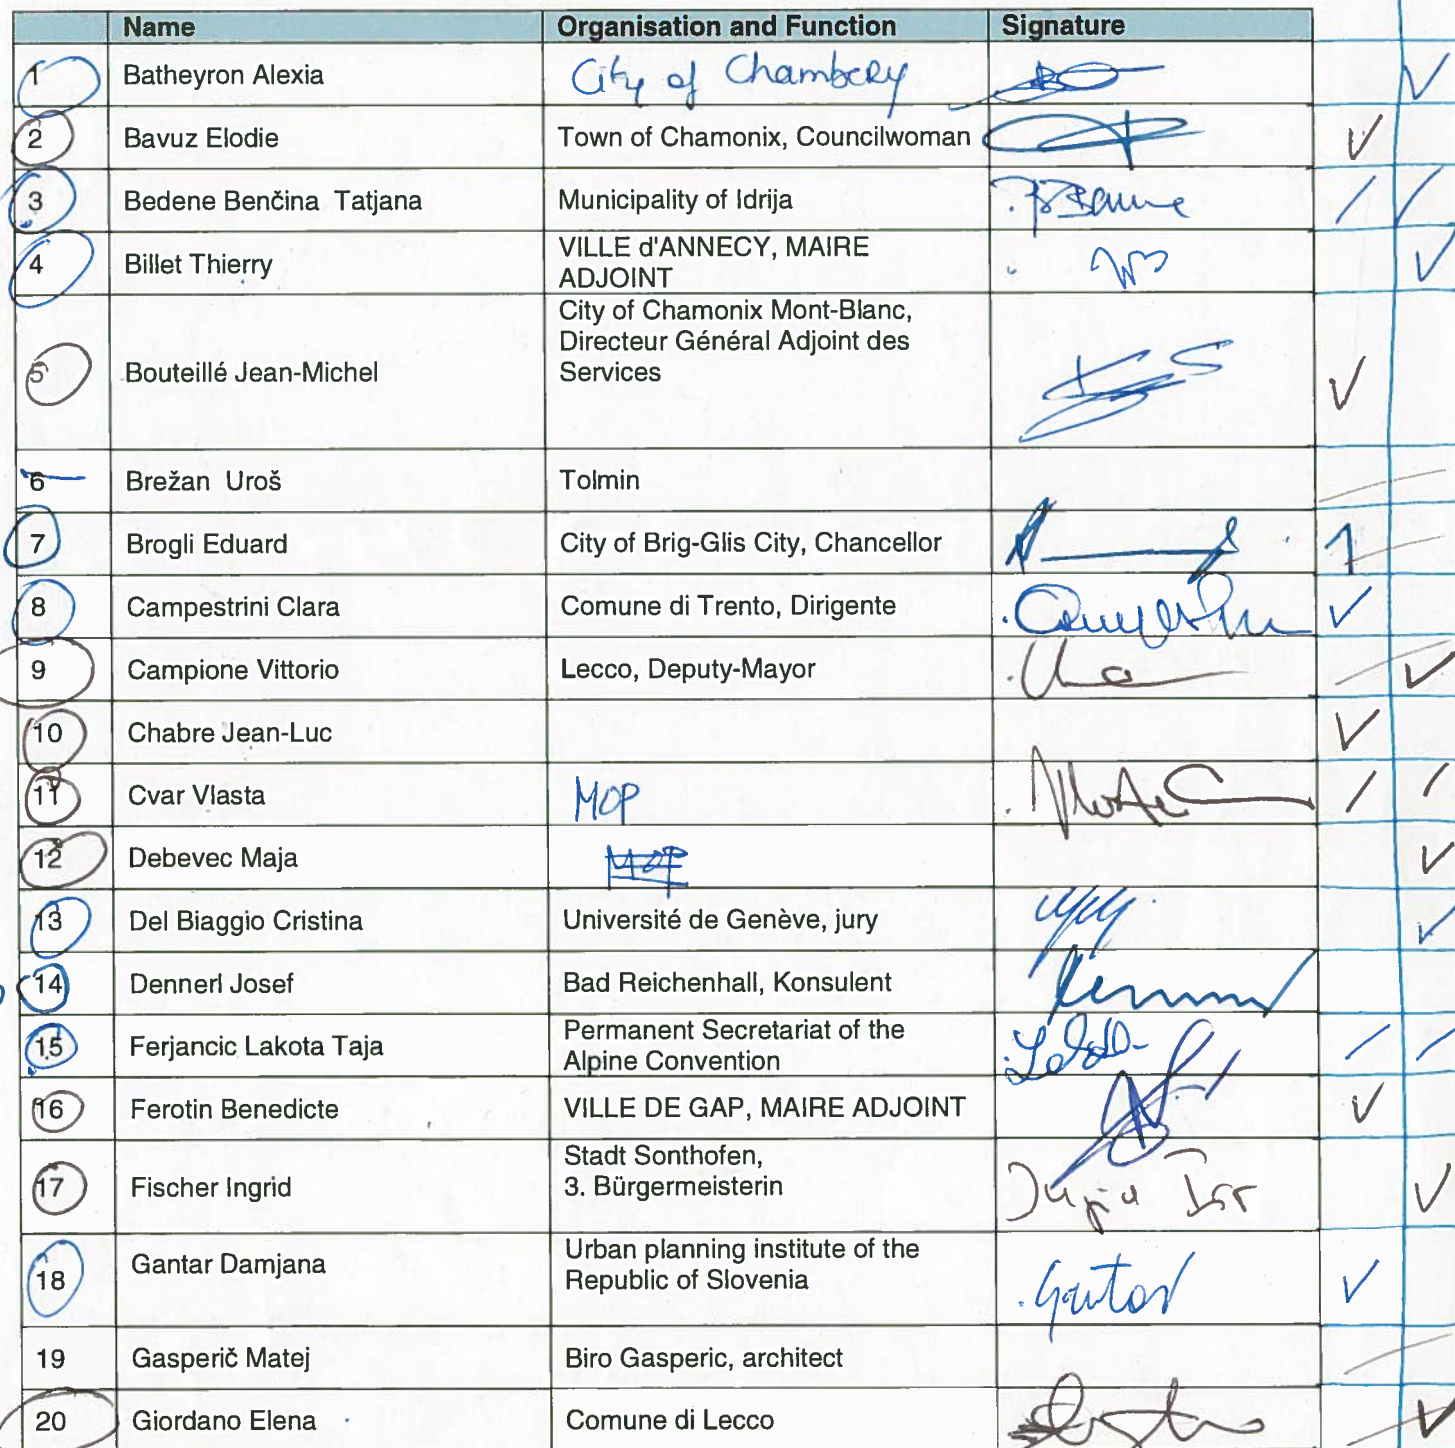 Name Organisation and Function Signature
1 Batheyron Alexia City of Chambery
2 Bavuz Elodie Town of Chamonix, Councilwoman
3 Bedene Benčina Tatjana Municipality of Idrija
4 Billet Thierry VILLE d'ANNECY, MAIRE
ADJOINT
5 Bouteillé Jean-Michel City of Chamonix Mont-Blanc,
Directeur Général Adjoint des
Services
6 Brežan Uroš Tolmin
7 Brogli Eduard City of Brig-Glis City, Chancellor
8 Campestrini Clara Comune di Trento, Dirigente
9 Campione Vittorio Lecco, Deputy-Mayor
10 Chabre Jean-Luc
11 Cvar Vlasta MOP
12 Debevec Maja MOP
13 Del Biaggio Cristina Université de Genève, jury
14 Dennerl Josef Bad Reichenhall, Konsulent
15 Ferjancic Lakota Taja Permanent Secretariat of the
Alpine Convention
16 Ferotin Benedicte VILLE DE GAP, MAIRE ADJOINT
17 Fischer Ingrid Stadt Sonthofen,
3. Bürgermeisterin
18 Gantar Damjana Urban planning institute of the
Republic of Slovenia Gantar
19 Gasperič Matej Biro Gasperic, architect
20 Giordano Elena Comune di Lecco